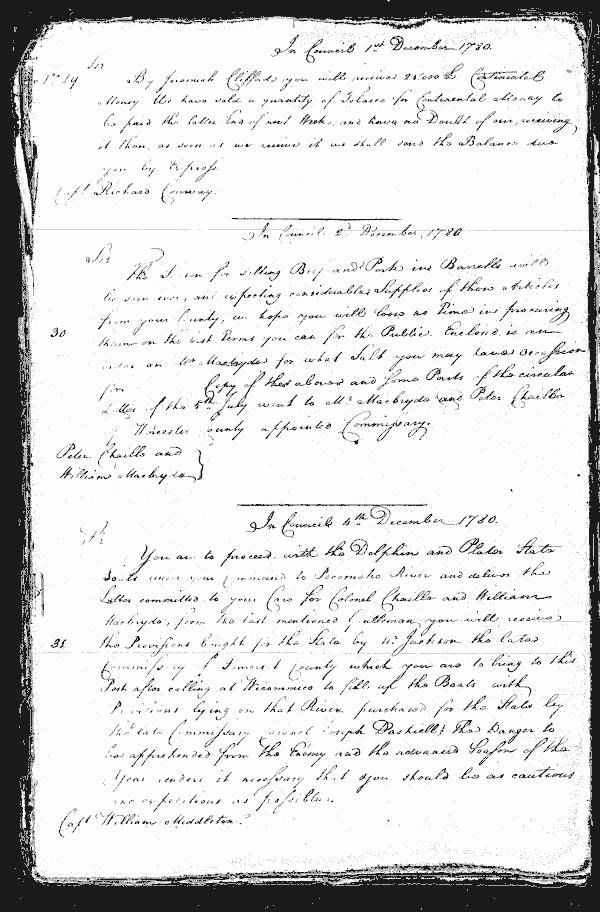 In Council 1st December 1780.
Sir
By Jeremiah Clifford you will receive 25,000 Continental
Money We have sold a quantity of Tobacco for Continental Money to
be paid the latter End of next Week, and have no Doubt of our receiving
it then, as soon as we receive it we shall send the Balance due
you by Express
Capt Richard Conway.
In Council 2d December, 1780
Sir
The Season for salting Beef and Pork in Barrells will
be soon over, and expecting considerable Supplies of those Articles
from your County, we hope you will loose no Time in procuring
30
them on the best Terms you can for the Public. Enclosed is an
order on Mr Macbryde for what Salt you may have occasion
for Copy of the above and some Parts of the circular
Letter of the 5th July went to Mr Macbryde and Peter Chaille
Worcester County appointed Commissary.
Peter Chaille and
William Macbryde
In Council 4th December 1780.
Sir
You are to proceed with the Dolphin and Plater State
Boats under your Command to Pocomoke River and deliver the
Letter committed to your Care for Colonel Chaille and William
Macbryde, from the last mentioned Gentleman you will receive
31
the Provisions bought for the State by Mr Jackson the late
Commissary of Somerset County which you are to bring to this
Port after calling at Wicommico to fill up the Boats with
Provisions lying on that River purchased for the State by
the late Commissary Colonel Joseph Dashiell; The Danger to
be apprehended from the Enemy and the advanced Season of the
Year renders it necessary that you should be as cautious
and expeditious as possible.
Capt William Middleton.